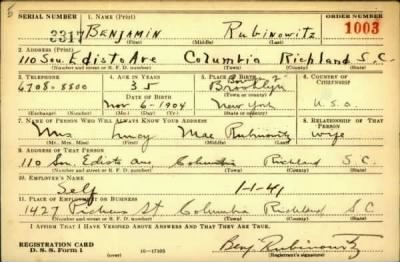 SERIAL NUMBER 1. NAME (Print) ORDER NUMBER
3317 BENJAMIN RUBINOWITZ 1003
(First) (Middle) (Last)
2. ADDRESS (Print)
110 Sou. Edisto Ave Columbia Richland S.C.
(Number and street or R. F. D. number) (Town) (County) (State)
3. TELEPHONE 4. AGE IN YEARS 5. PLACE OF BIRTH 6. COUNTRY OF CITIZENSHIP
6708-8800 35 Brooklyn
DATE OF BIRTH (Town or county)
Nov-6-1904 New York U.S.a.
(Exchange) (Number) (Mo.) (Day) (Yr.) (State or country)
7. NAME OF PERSON WHO WILL ALWAYS KNOW YOUR ADDRESS 8. RELATIONSHIP OF THAT PERSON
Mrs Mae Rubinowitz wife
(Mr., Mrs., Miss) (First) (Middle) (Last)
9. ADDRESS OF THAT PERSON
110 Sou. Edisto ave Columbia Richland S.C.
(Number and street or R. F. D. number) (Town) (County) (State)
10. EMPLOYER'S NAME
Self 1-1-41
11. PLACE OF EMPLOYMENT OR BUSINESS
1427 Pickens St Columbia Richland S C
(Number and street or R. F. D. number) (Town) (County) (State)
I AFFIRM THAT I HAVE VERIFIED ABOVE ANSWERS AND THAT THEY ARE TRUE.
REGISTRATION CARD
D. S. S. Form 1 (over) 16-17105 Benj Rubinowitz
(Registrant's signature)